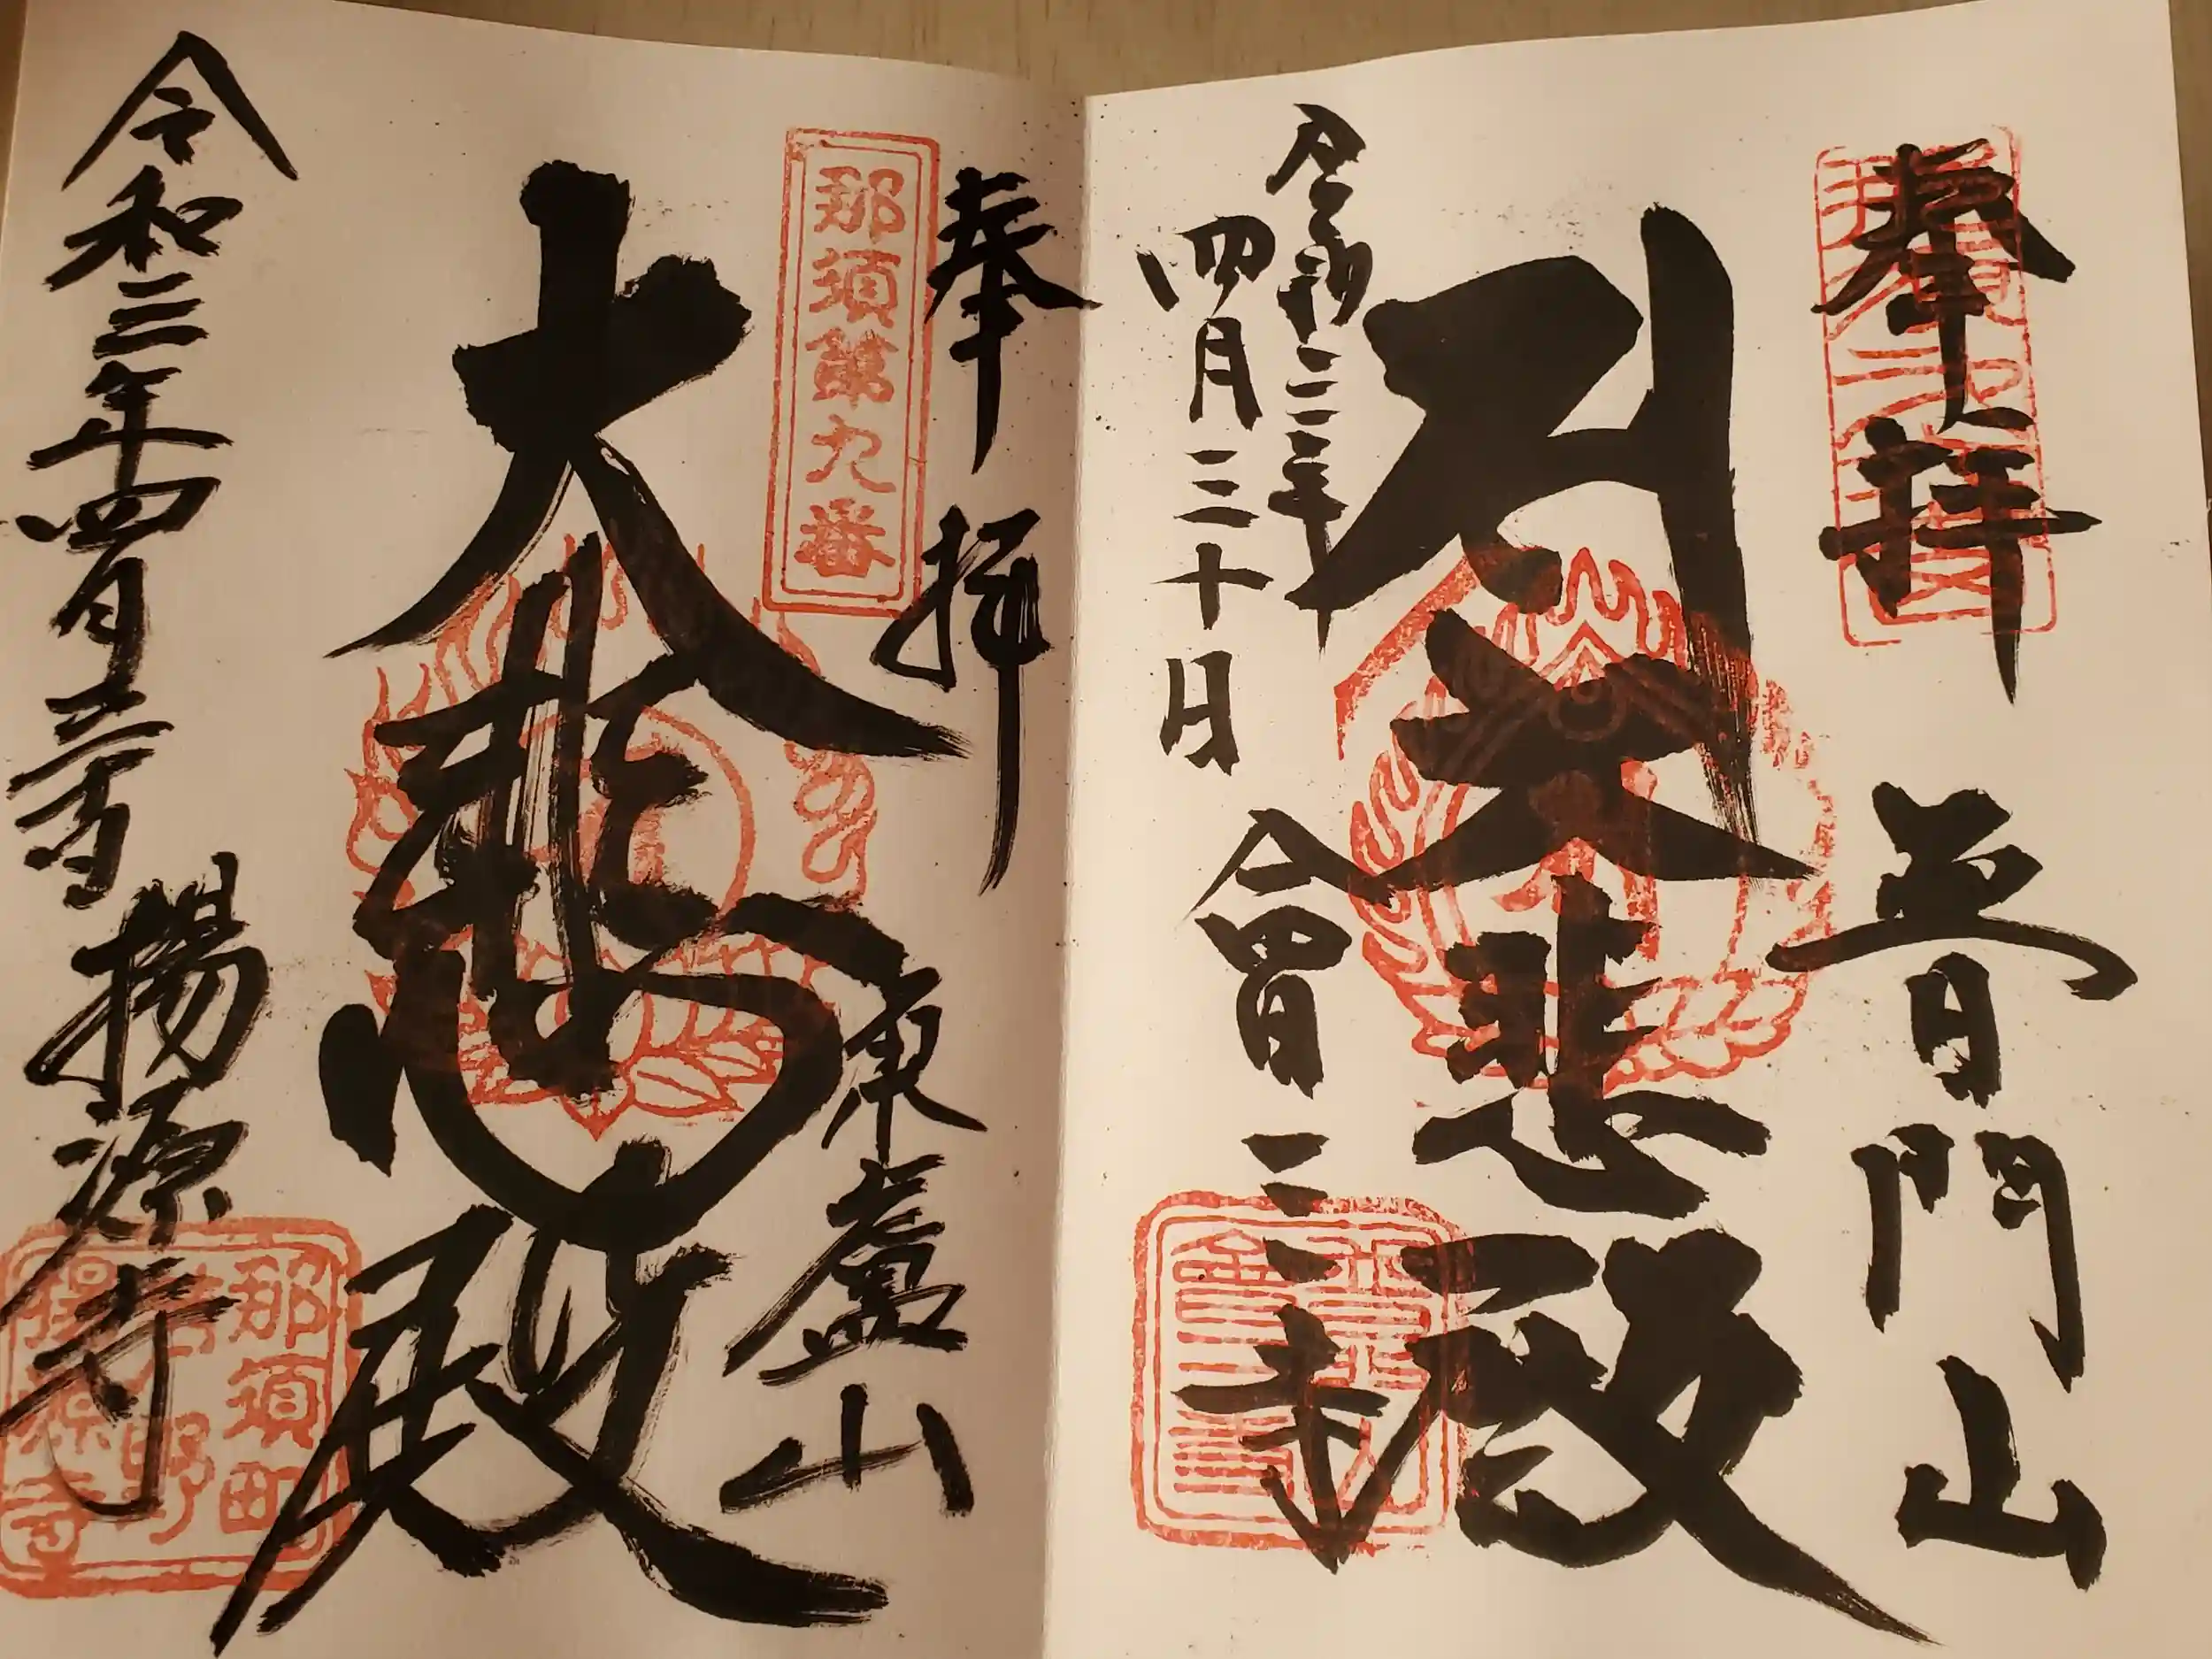 奉拝
普門山
大悲殿
令和三年
四月三十日
會三寺
奉拝
東盧山
那須第九番
大悲殿
令和三年四月
揚源寺
那須町
揚源寺